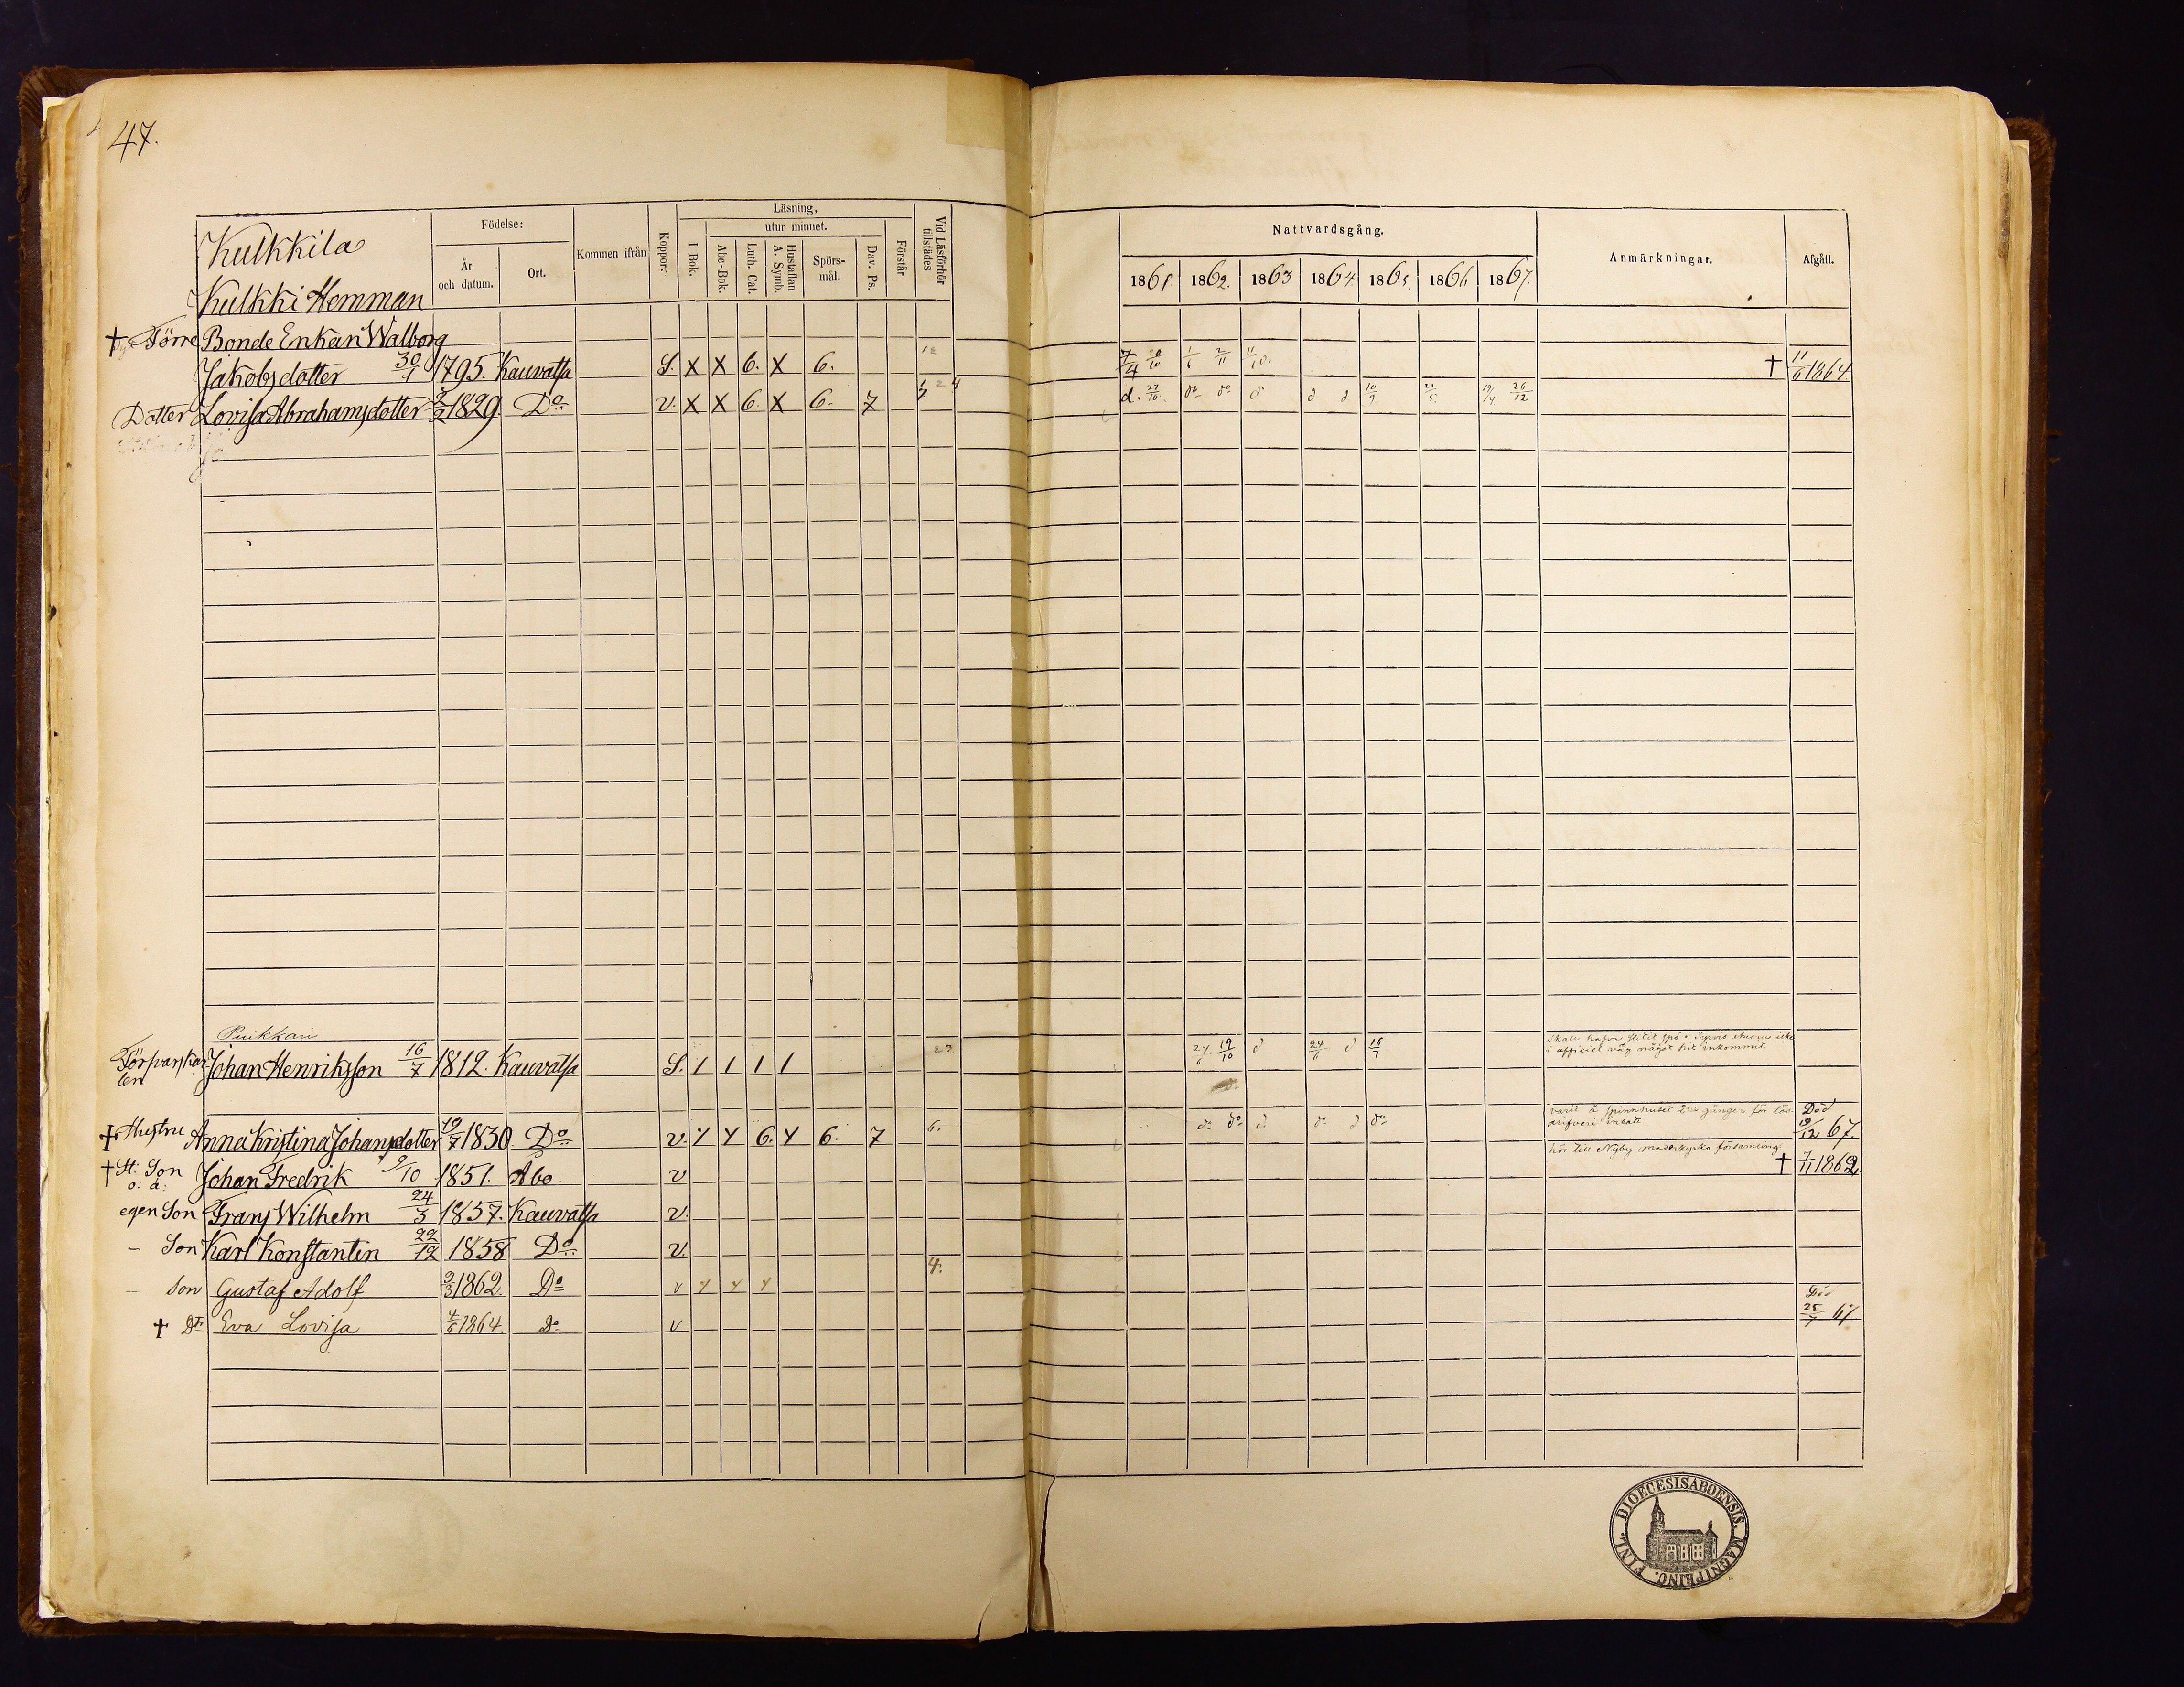 47.
Kulkkila
Kulkki Hemman
Födelse:
År och datum.
Ort.
Kommen ifrån
Koppor:
Läsning,
I Bok.
utur minnet.
Abc-Bok.
Luth. Cat.
Hustaflan A. Symb.
Spörs-mål.
Dav. Ps.
Förstår
Vid Läsförhör tillstädes
Nattvardsgång.
1861. 1862. 1863 1864. 1865. 1866 1867.
Anmärkningar.
Afgått.
† Förre Bonde Enkan Walborg
Jakobsdotter 30/1 1795. Kauvatsa S. X X 6. X 6. 7/4 20/10 1/6 2/11 11/10. † 11/6 1864.
Dotter Lovisa Abrahamsdotter 2/2 1829 Do v. X X 6. X 6. 7 d. 27/10 do do d d d 10/9 21/5. 19/4. 26/12
Puikkari
Johan Henriksson 16/7 1812. Kauvatsa S. 1 1 1 1 23. 24/6 19/10 d 24/6 d 16/7
i officiel väg något hit inkommit
varit å spinnhuset 2 gånger för lös- Död
† Hustru Anna Kristina Johansdotter 19/7 1830 Do v. Y Y 6. Y 6. 7 6. d. do d. d. d do 19/12 67.
hör till Nyby moderkyrko församling
† St: Son Johan Fredrik 9/10 1851. Abo v † 7/11 1862.
o: ä:
egen Son Frans Wilhelm 24/3 1857. Kauvatsa v.
– Son Karl Konstantin 22/12 1858 Do v.
– Son Gustaf Adolf 9/3 1862. Do v Y Y Y 4.
Död
† Dr Eva Lovisa 4/6 1864. Do v 25/7 67
DIOECESIS ABOENSIS. MAGNI PRINC. FINL.